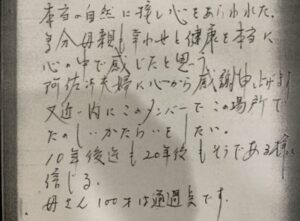 本当の自然に接し心をあらわれた。
多分母親も幸わせと健康を本当に
心の中で感じたと思って
阿佐沙夫婦に心から感謝申し上げます
又近い内にこのメンバーでこの場所で
たのしいかたらいをしたい。
10年後迄も20年後もそうである様
信じる。
母さん100才は通過点です。